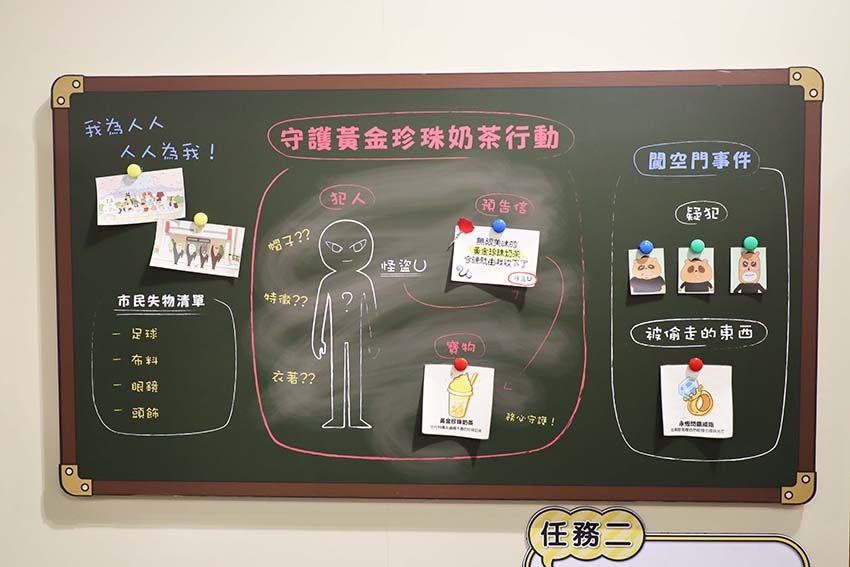 我為人人
人人為我！
市民失物清單
– 足球
– 布料
– 眼鏡
– 頭飾
守護黃金珍珠奶茶行動
犯人
帽子??
特徵??
衣著??
?
怪盜U
預告信
無限美味的
黃金珍珠奶茶
今晚就由我收下了
怪盜U
寶物
黃金珍珠奶茶
務必守護！
闖空門事件
疑犯
被偷走的東西
永恆閃鑽戒指
任務二